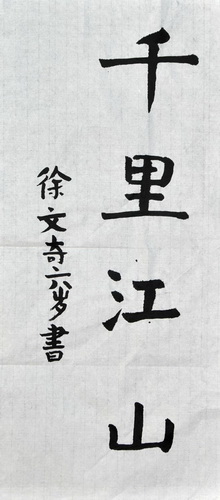 千里江山
徐文奇六岁書